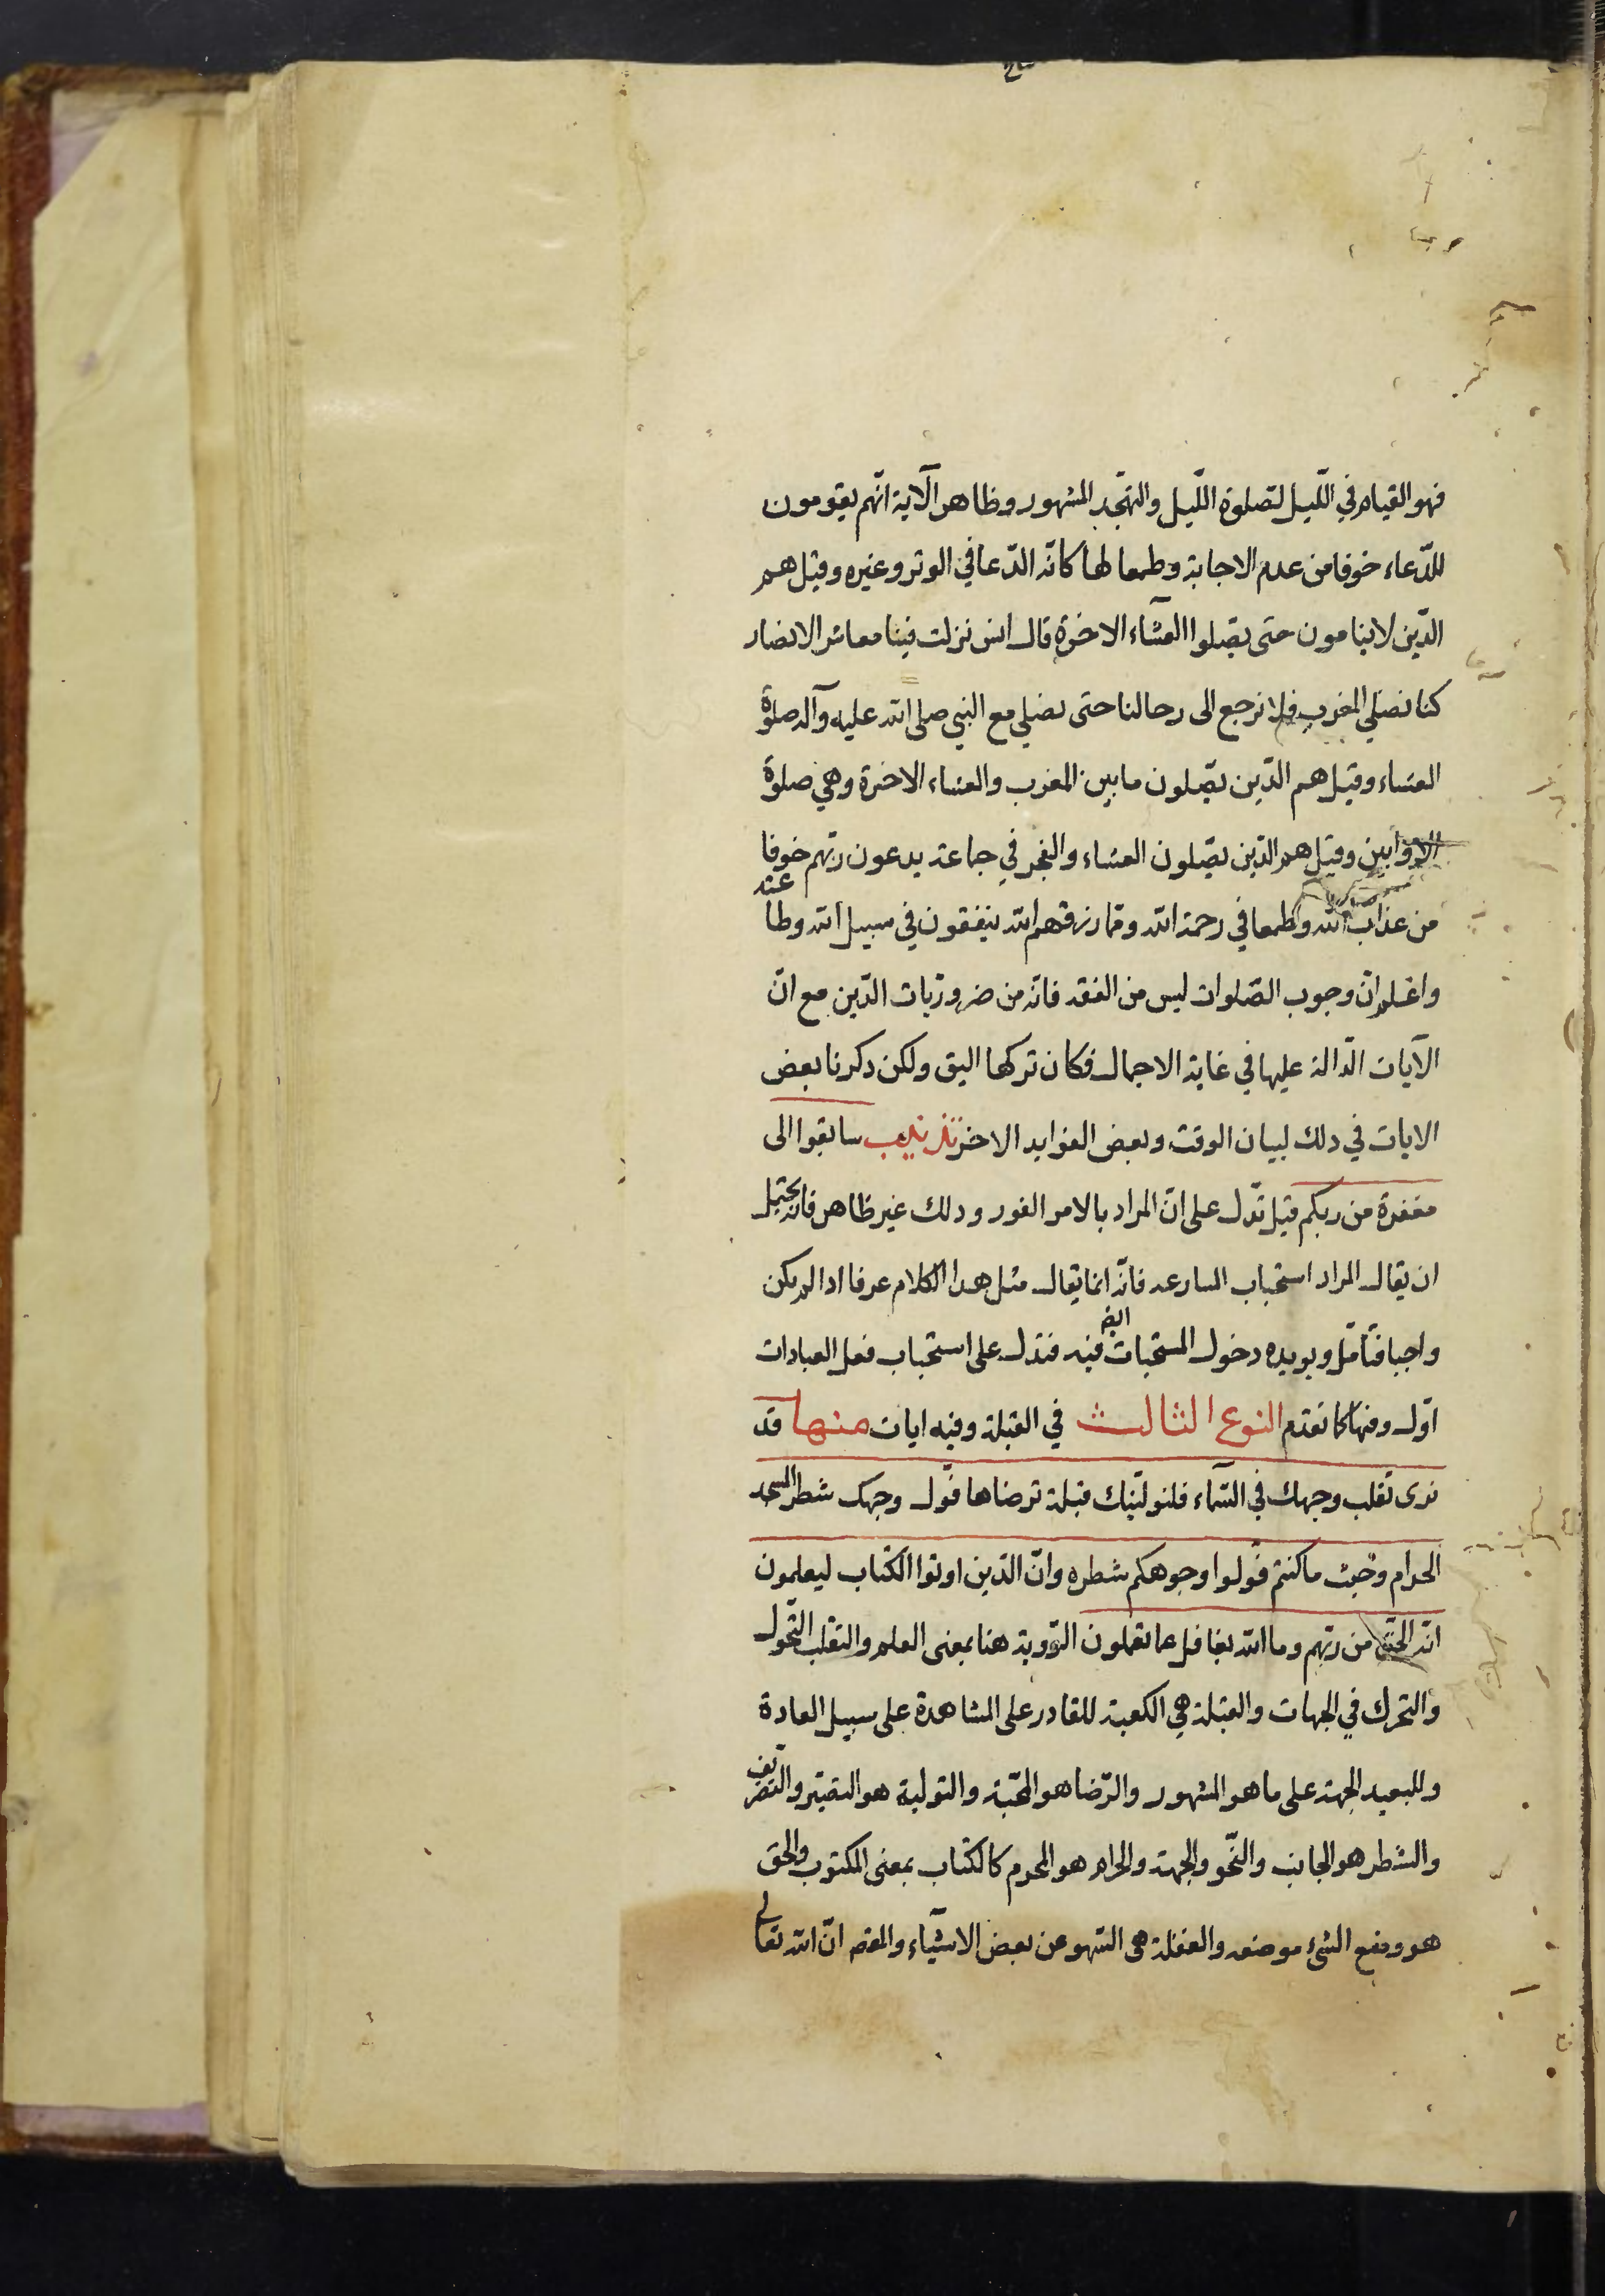 فهو القيام في الليل لصلوة الليل والتهجد المشهور وظاهر الآية انهم يقومون
للدعاء خوفا من عدم الاجابة وطمعا لها كانه الدعا في الوتر وغيره وقيل هم
الذين لا ينامون حتى يصلوا العشاء الاخرة قال انس نزلت فينا معاشر الانصار
كنا نصلي المغرب فلا نرجع الى رحالنا حتى نصلي مع النبي صلى الله عليه وآله صلوة
العشاء وقيل هم الذين يصلون ما بين المغرب والعشاء الاخرة وهي صلوة
الاوابين وقيل هم الذين يصلون العشاء والفجر في جماعة يدعون ربهم خوفا
من عذاب الله وطمعا في رحمة الله ومما رزقهم الله ينفقون في سبيل الله وطاعته
واعلم ان وجوب الصلوات ليس من الفقه فانه من ضروريات الدين مع ان
الآيات الدالة عليها في غاية الاجمال فكان تركها اليق ولكن ذكرنا بعض
الايات في ذلك لبيان الوقت وبعض الفوايد الاخر تذنيب سابقوا الى
مغفرة من ربكم قيل تدل على ان المراد بالامر الفور وذلك غير ظاهر فانه يحتمل
ان يقال المراد استحباب المسارعه فانه انما يقال مثل هذا الكلام عرفا اذا لم يكن
واجبا فتامل ويويده دخول المستحبات ايضا فيه فتدل على استحباب فعل العبادات
اول وقتها كما تقدم النوع الثالث في القبلة وفيه ايات منها قد
نرى تقلب وجهك في السماء فلنولينك قبلة ترضاها فول وجهك شطر المسجد
الحرام وحيث ما كنتم فولوا وجوهكم شطره وان الذين اوتوا الكتاب ليعلمون
انه الحق من ربهم وما الله بغافل عما تعملون الرؤية هنا بمعنى العلم والتقلب التحول
والتحرك في الجهات والقبلة هي الكعبة للقادر على المشاهدة على سبيل العادة
وللبعيد الجهة على ما هو المشهور والرضا هو المحبة والتولية هو التصيير والتصريف
والشطر هو الجانب والنحو والجهة والحرام هو المحرم كالكتاب بمعنى المكتوب والحق
هو وضع الشئ موضعه والغفلة هى السهو عن بعض الاشياء والمعنى ان الله تعالى